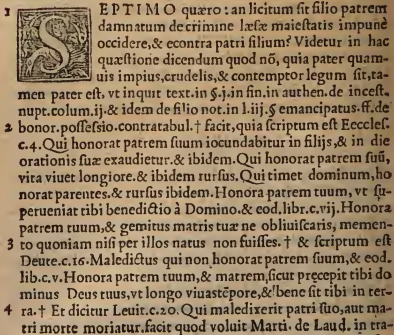 1 SEPTIMO quæro: an licitum sit filio patrem
damnatum de crimine læsæ maiestatis impunè
occidere,& econtra patri filium? Videtur in hac
quæstione dicendum quod nõ, quia pater quam-
uis impius, crudelis, & contemptor legum sit, ta-
men pater est, vt inquit text.in §.j.in fin.in authen.de incest.
nupt.colum.ij.& idem de filio not.in l.iij.§ emancipatus.ff.de
2 bonor.possessio.contratabul.† facit,quia scriptum est Eccles.
c.4.Qui honorat patrem suum iocundabitur in filijs,& in die
orationis suæ exaudietur.& ibidem.Qui honorat patrem suũ,
vita viuet longiore.& ibidem rursus.Qui timet dominum,ho
norat parentes.& rursus ibidem.Honora patrem tuum, vt su-
perueniat tibi benedictio à Domino.& eod.libr.c.vij.Honora
patrem tuum,& gemitus matris tuæ ne obliuiscaris, memen-
3 to quoniam nisi per illos natus non fuisses.† & scriptum est
Deute.c.16.Maledictus qui non honorat patrem suum,& eod.
lib.c.v.Honora patrem tuum,& matrem,sicut precepit tibi do
minus Deus tuus,vt longo viuas tẽpore,& bene sit tibi in ter-
4 ra.† Et dicitur Leuit.c.20. Qui maledixerit patri suo,aut ma-
tri morte moriatur.facit quod voluit Marti.de Laud. in tra-